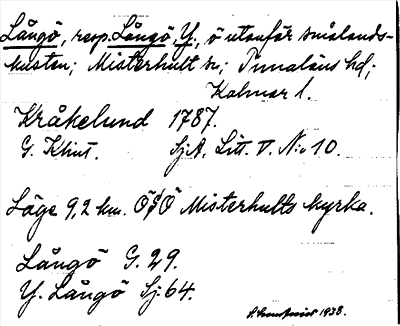 Långö, resp. Långö, Y., ö utanför smålands-
kusten; Misterhult sn; Tunaläns hd;
Kalmar l.
Kråkelund 1787.
G. Klint. Sj.A. Litt. V. N:o 10.
Läge 9,2 km. ÖSÖ Misterhults kyrka.
Långö G. 29.
Y. Långö Sj. 64.
1938.